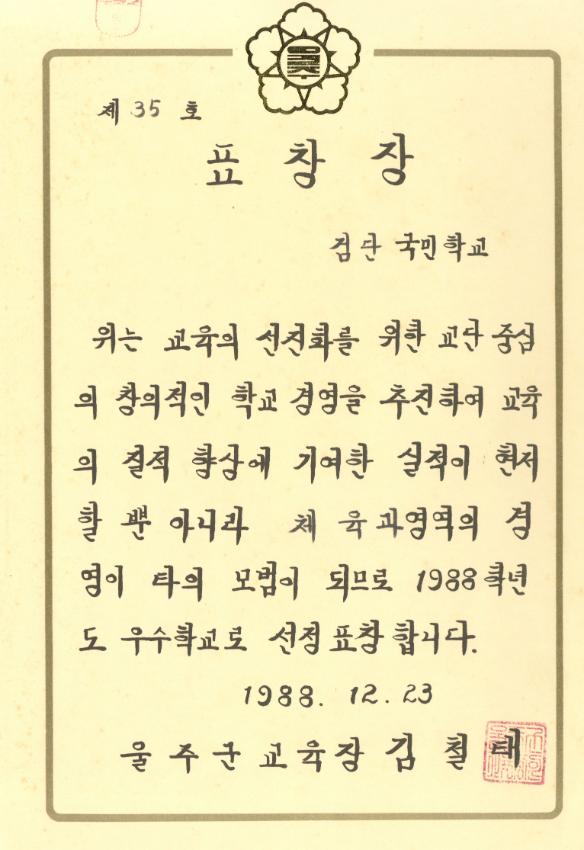 제 35 호
표 창 장
검단 국민학교
위는 교육의 선진화를 위한 교단 중심
의 창의적인 학교 경영을 추진하여 교육
의 질적 향상에 기여한 실적이 현저
할 뿐 아니라 체 육과영역의 경
영이 타의 모범이 되므로 1988학년
도 우수학교로 선정 표창 합니다.
1988. 12. 23
울 주 군 교 육 장 김 철 태